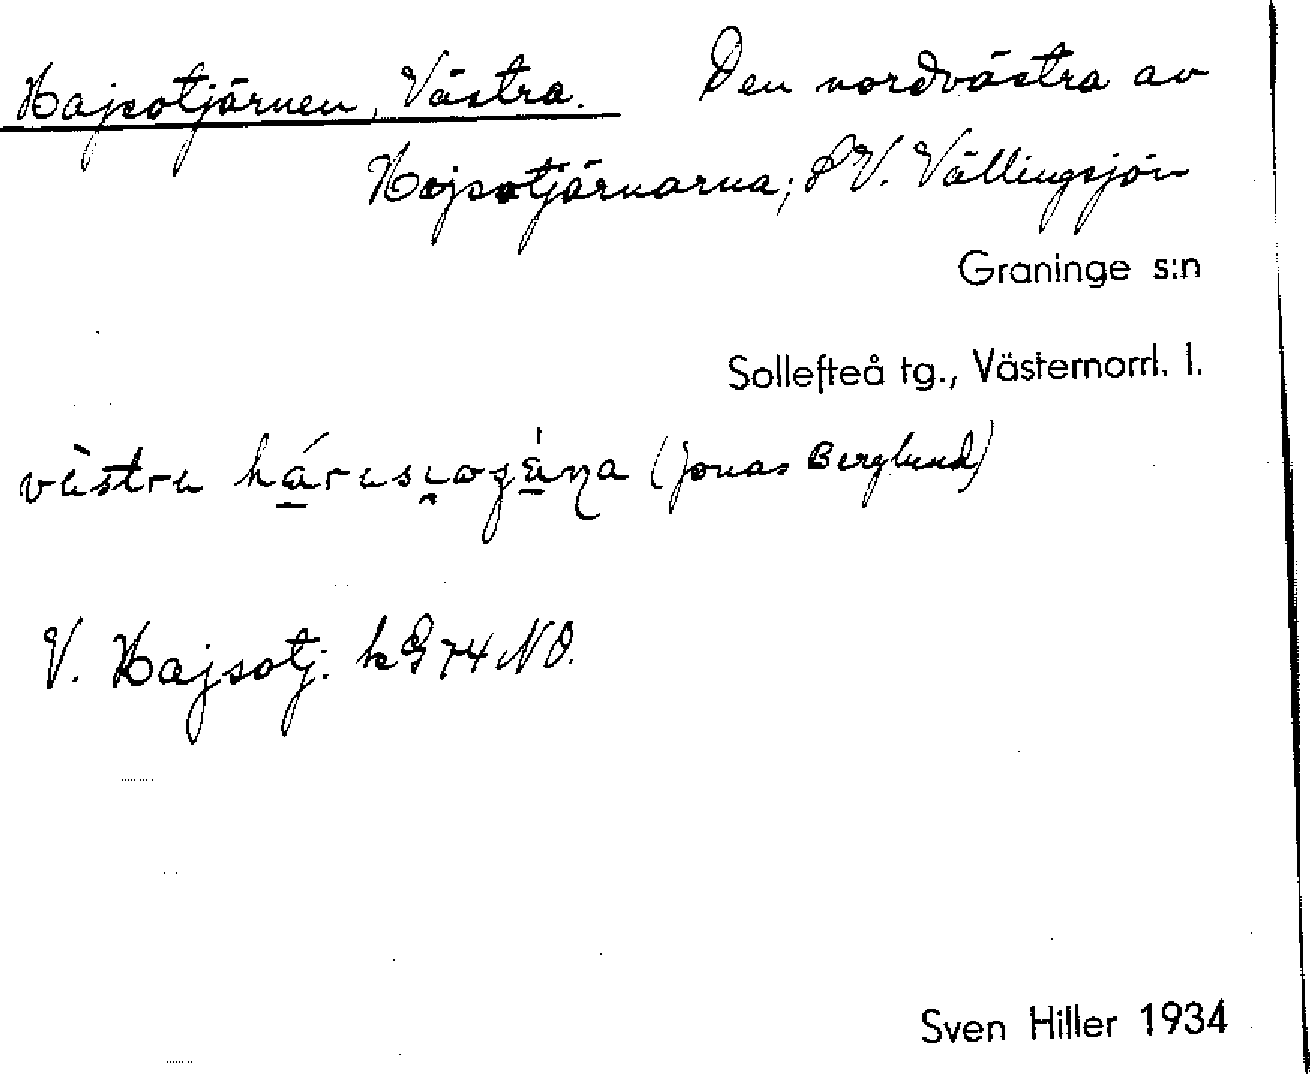 Hajsotjärnen, Västra. Den nordvästra av
Hajsotjärnarna; SV. Vällingsjön
Graninge s:n
Sollefteå tg., Västernorrl. l.
(Jonas Berglund)
V. Hajsotj. kG74NO.
Sven Hiller 1934